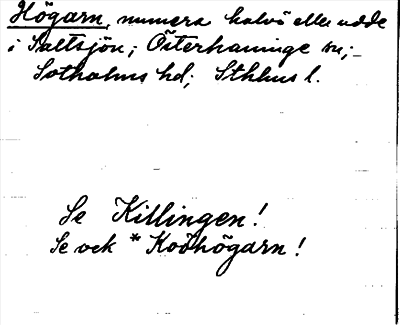 Högarn, numera halvö eller udde
i Saltsjön; Österhaninge sn;
Sotholms hd; Sthlms l.
Se Killingen!
Se ock * Koöhögarn!